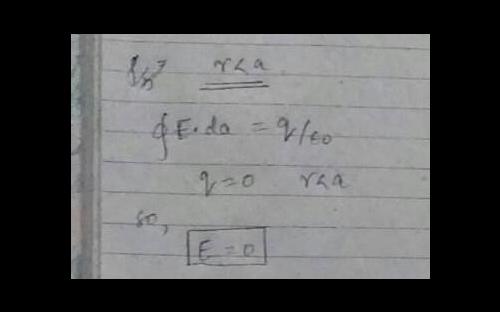 r<a
∮E.da = q/ε0
q=0 r<a
so,
E = 0